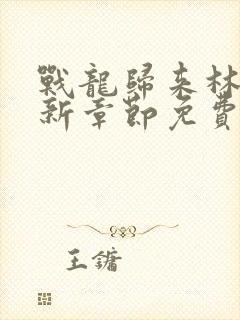 戰龍歸來林
新章節免費
王鏞